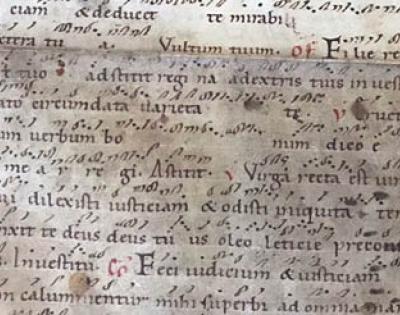 ciam & deducet te mirabili
tera tu a. Vultum tuum. of Filie re
t tuo adstitit regi na adextris tuis in ves
ato circumdata varieta te. v Eruct
um verbum bo num dico e
me a r re gi. Astitit. v Virga recta est vir
ui dilexisti iusticiam & odisti iniquita tem
nxit te deus deus tu us oleo leticie precon
s. In vestitu. co Feci iudicium & iusticiam
n calumnientur mihi superbi ad omnia man